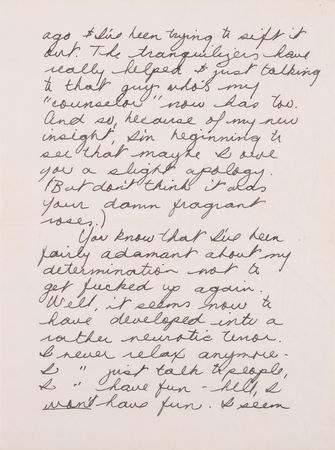 ago & I've been trying to sift it
out. The tranquilizers have
really helped & just talking
to that guy who's my
"counselor" now has too.
And so, because of my new
insight, I'm beginning to
see that maybe I owe
you a slight apology.
(But don't think it was
your damn fragrant
roses.)
You know that I've been
fairly adamant about my
determination not to
get fucked up again.
Well, it seems now to
have developed into a
rather neurotic tenor.
I never relax anymore -
I " just talk to people,
I " have fun - hell, I
won't have fun. I seem